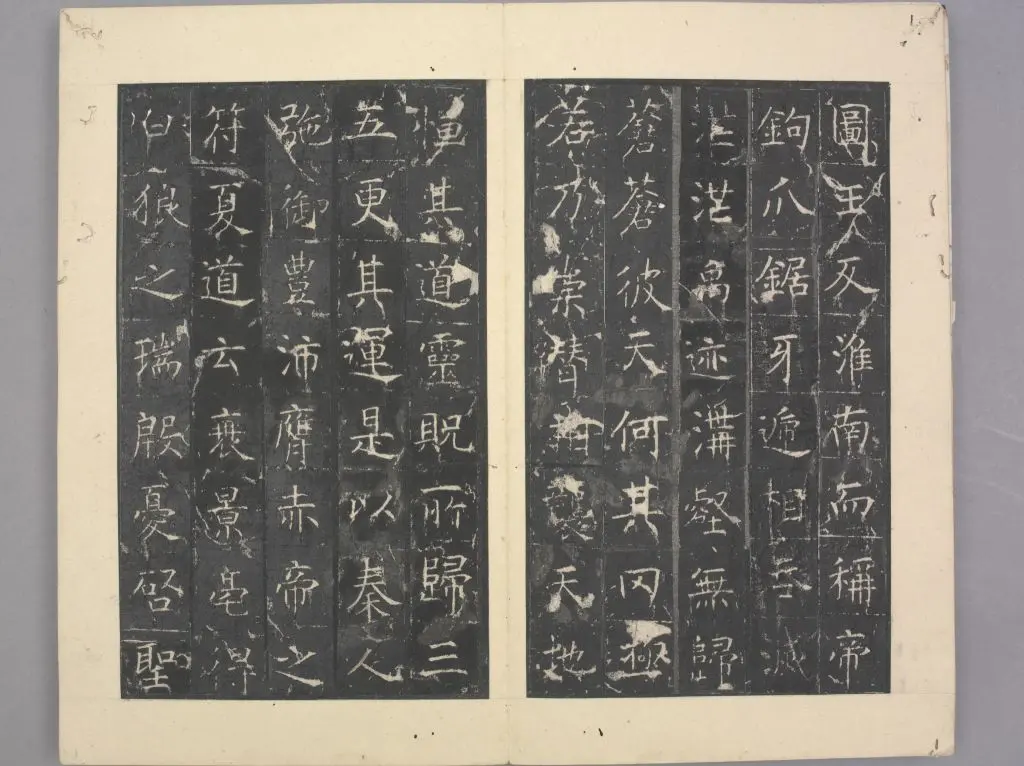 圖王反淮南而稱帝
鉤爪鋸牙遞相吞滅
茫茫禹迹溝壑無歸
蒼蒼彼天何其罔極
若乃崇替相襲天地
恒其道靈貺所歸三
五更其運是以秦人
弛御豐沛膺赤帝之
符夏道云衰景亳得
白狼之瑞殷憂啓聖